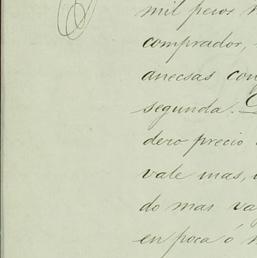 mil pesos
comprador,
anecsas con
segunda.
dero precio
vale mas,
do mas va
en poca ó